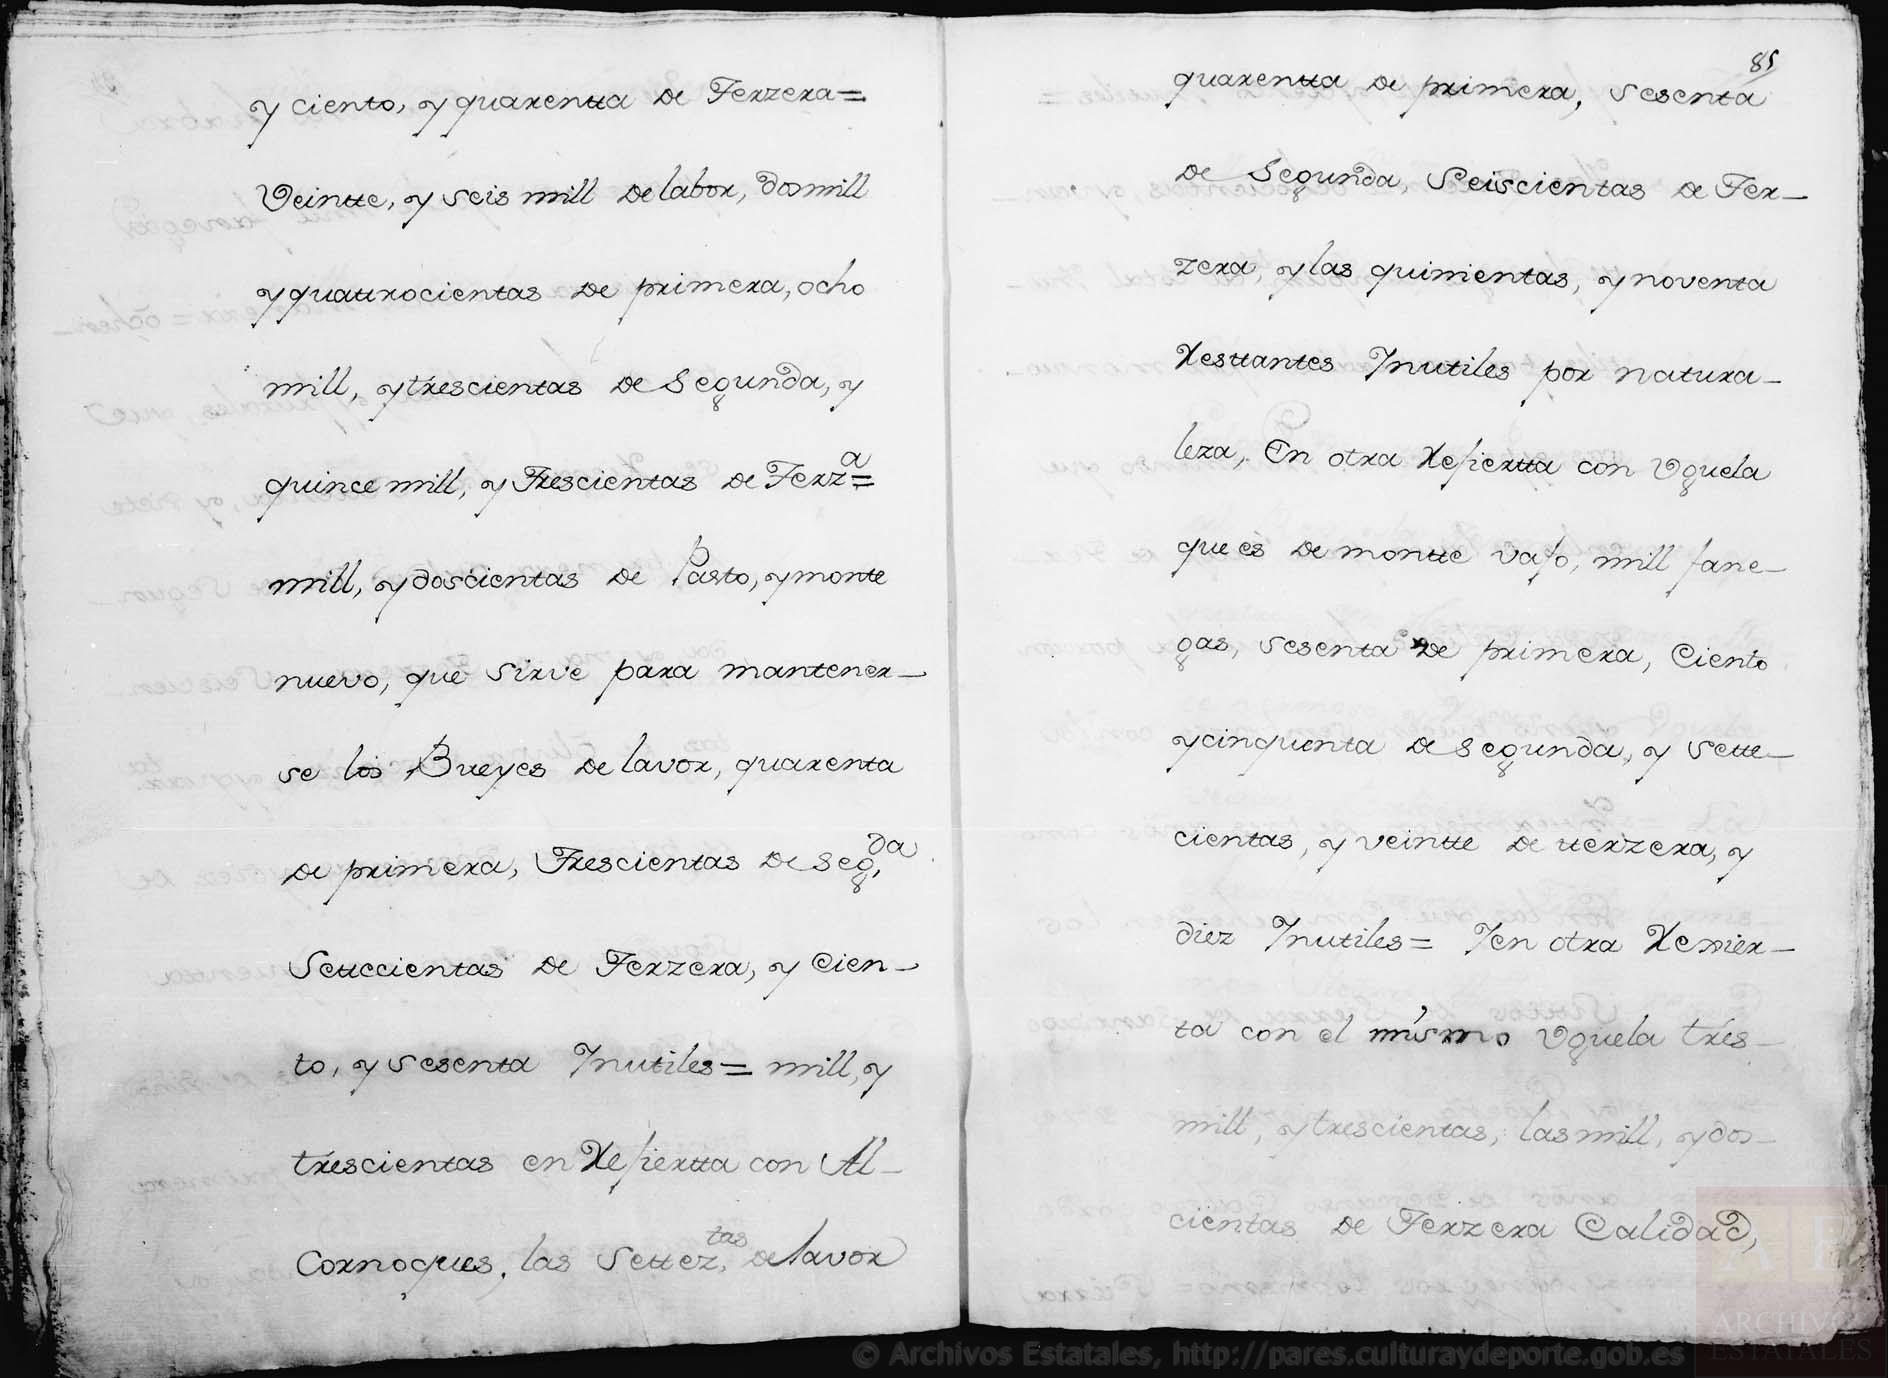 y ciento, y quarentta de Terzera=
Veintte, y seis mill de labor, dosmill
y quattrocientas de primera, ocho
mill, y trescientas de Segunda, y
quince mill, y Trescientas de Terz.ª=
mill, y doscientas de Pasto, y monte
nuevo, que sirve para mantener-
se los Bueyes de lavor, quarenta
de primera, Trescientas de seg.da
Settecientas de Terzera, y Cien-
to, y sesenta Inutiles= mill, y
trescientas en Xesiertta con Al-
Cornoques, las Settez.tas de lavor
85
quarentta de primera, Sesenta
de Segunda, Seiscientas de Ter-
zera, y las quinientas, y noventa
Xesttantes Inutiles por natura-
leza, En otra Xesiertta con Vguela
que és de montte vajo, mill fane-
gas, sesenta de primera, Ciento
y cinquenta de segunda, y Sette-
cientas, y veintte de tterzera, y
diez Inutiles= Yen otra Xesier-
ta con el mismo Vguela tres-
mill, y trescientas, las mill, y dos-
cientas de Terzera Calidad,
© Archivos Estatales, http://pares.culturaydeporte.gob.es
AE
ARCHIVOS
ESTATALES